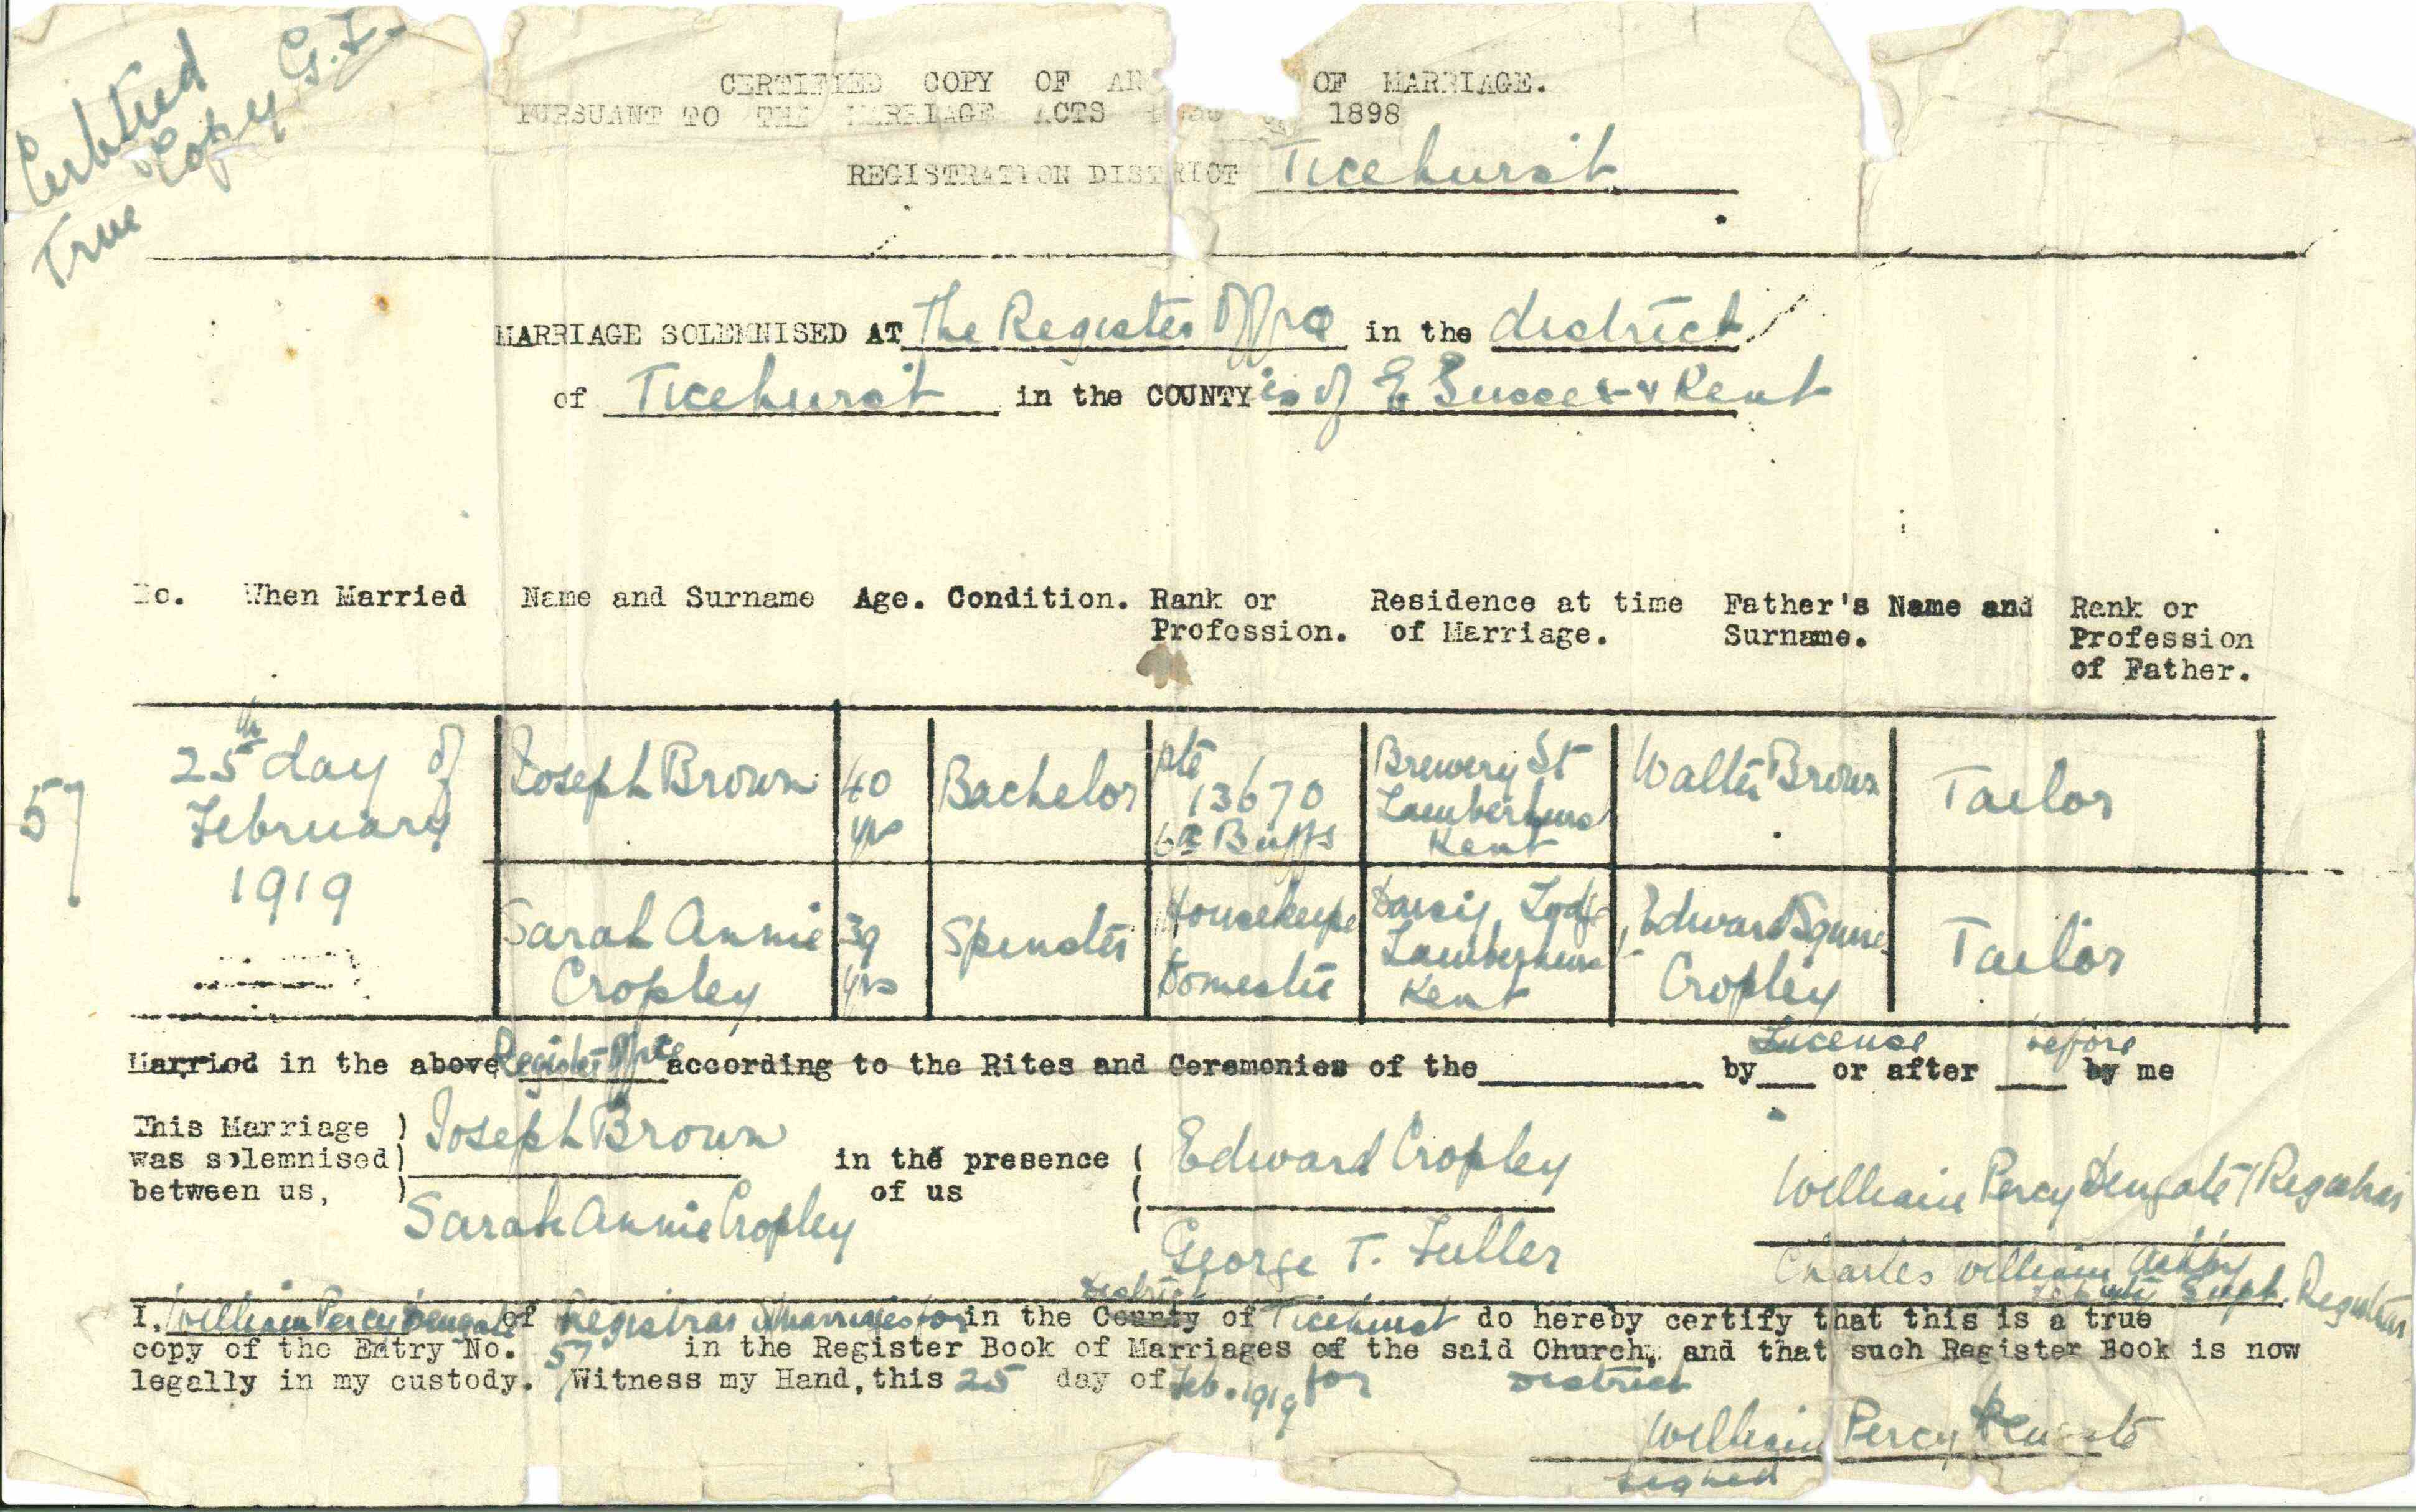 Certified
True Copy G.F.
CERTIFIED COPY OF AN OF MARRIAGE.
PURSUANT TO THE MARRIAGE ACTS 1898
REGISTRATION DISTRICT Ticehurst
MARRIAGE SOLEMNISED AT The Register Office in the district
of Ticehurst in the COUNTY ies of E Sussex & Kent
No. When Married Name and Surname Age. Condition. Rank or Profession. Residence at time of Marriage. Father's Name and Surname. Rank or Profession of Father.
57 25th day of February 1919
Joseph Brown 40 yrs Bachelor Pte 13670 6th Buffs Brewery St Lamberhurst Kent Walter Brown Tailor
Sarah Annie Cropley 39 yrs Spinster Housekeeper Domestic Lodge Lamberhurst Kent Edward Squires Cropley Tailor
License before
Married in the above Register Office according to the Rites and Ceremonies of the by or after by me
This Marriage ) Joseph Brown
was solemnised) in the presence ( Edward Cropley
between us, ) of us (
Sarah Annie Cropley George T. Fuller
William Percy Dengate Registrar
Charles William Ashby
Supt. Registrar
District
I, William Percy Dengate of Registrar of marriages for in the County of Ticehurst do hereby certify that this is a true
copy of the Entry No. 57 in the Register Book of Marriages of the said Church, and that such Register Book is now
legally in my custody. Witness my Hand, this 25 day of Feb. 1919 for District
William Percy Dengate
signed